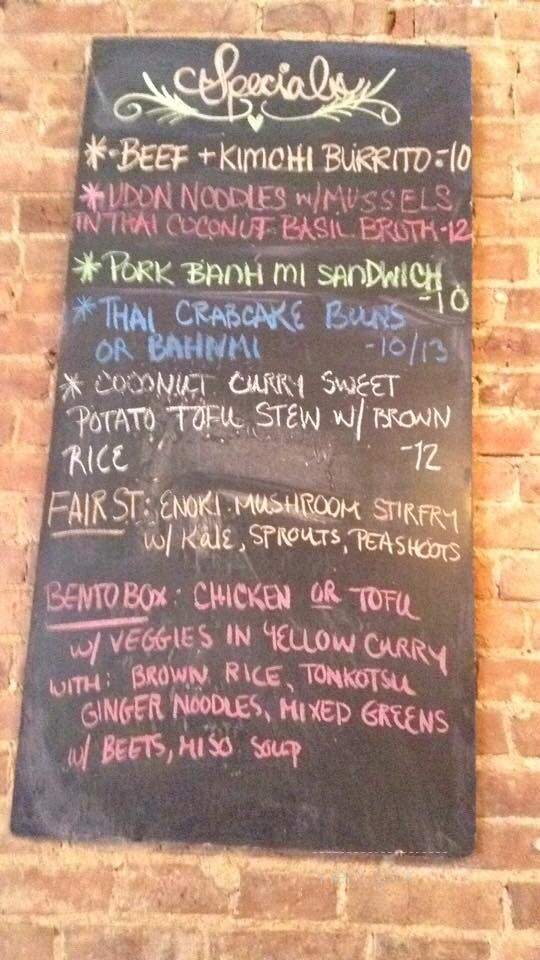 Specials
* BEEF + KIMCHI BURRITO - 10
* UDON NOODLES w/MUSSELS
IN THAI COCONUT BASIL BROTH - 12
* PORK BANH MI SANDWICH
- 10
* THAI CRABCAKE BUNS
OR BAHNMI - 10/13
* COCONUT CURRY SWEET
POTATO TOFU STEW W/ BROWN
RICE - 12
FAIR ST: ENOKI MUSHROOM STIRFRY
w/ Kale, SPROUTS, PEASHOOTS
BENTO BOX: CHICKEN OR TOFU
w/ VEGGIES IN YELLOW CURRY
WITH: BROWN RICE, TONKOTSU
GINGER NOODLES, MIXED GREENS
w/ BEETS, MISO SOUP